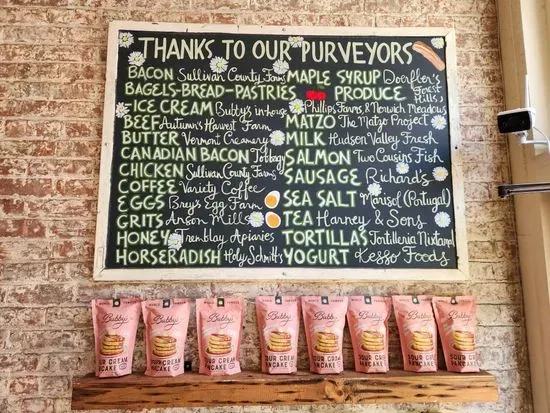 THANKS TO OUR PURVEYORS
BACON Sullivan County Farms
BAGELS-BREAD-PASTRIES
ICE CREAM Bubby's in-house
BEEF Autumn's Harvest Farm
BUTTER Vermont Creamery
CANADIAN BACON Tobbags
CHICKEN Sullivan County Farms
COFFEE Variety Coffee
EGGS Brey's Egg Farm
GRITS Anson Mills
HONEY Tremblay Apiaries
HORSERADISH Holy Schmitt's
MAPLE SYRUP Doerfler's
PRODUCE Forest Hills,
Phillips Farms, & Norwich Meadows
MATZO The Matzo Project
MILK Hudson Valley Fresh
SALMON Two Cousins Fish
SAUSAGE Richard's
SEA SALT Marisol (Portugal)
TEA Harney & Sons
TORTILLAS Tortilleria Nixtamal
YOGURT Kesso Foods
Bubby's
SOUR CREAM
PANCAKE
Bubby's
SOUR CREAM
PANCAKE
Bubby's
SOUR CREAM
PANCAKE
Bubby's
SOUR CREAM
PANCAKE
Bubby's
SOUR CREAM
PANCAKE
Bubby's
SOUR CREAM
PANCAKE
Bubby's
SOUR CREAM
PANCAKE
Bubby's
SOUR CREAM
PANCAKE